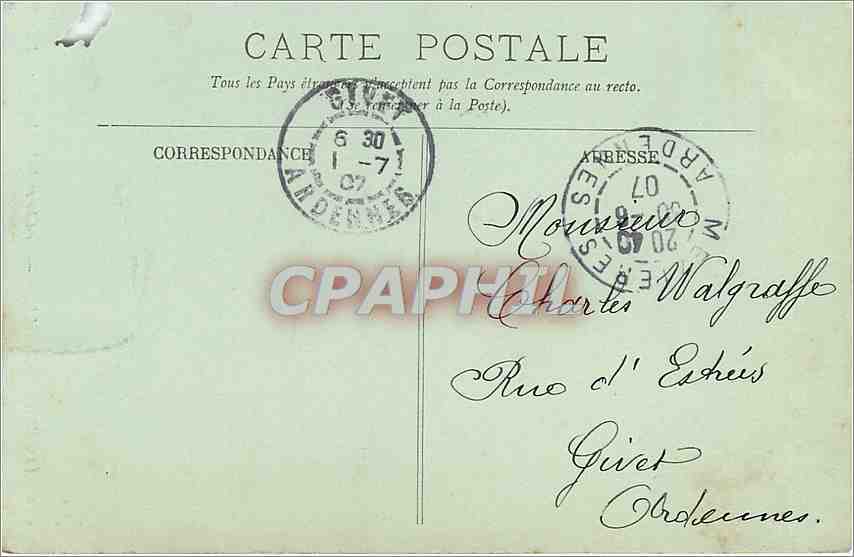 CARTE POSTALE
Tous les Pays étrangers n'acceptent pas la Correspondance au recto.
(Se renseigner à la Poste).
CORRESPONDANCE
ADRESSE
GIVET
6 30
1 -7
07
ARDENNES
ARDENNES
07
20 40
CPAPHIL
Monsieur
Charles Walgraffe
Rue d'Estrées
Givet
Ardennes.